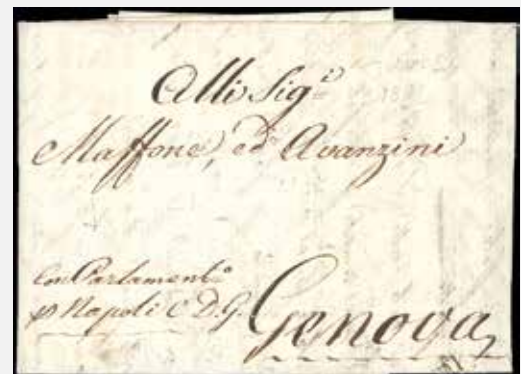 Alli Sig.ⁱ
Maffone, ed Avanzini
Con Parlament.º
p Napoli C D. G.
Genova